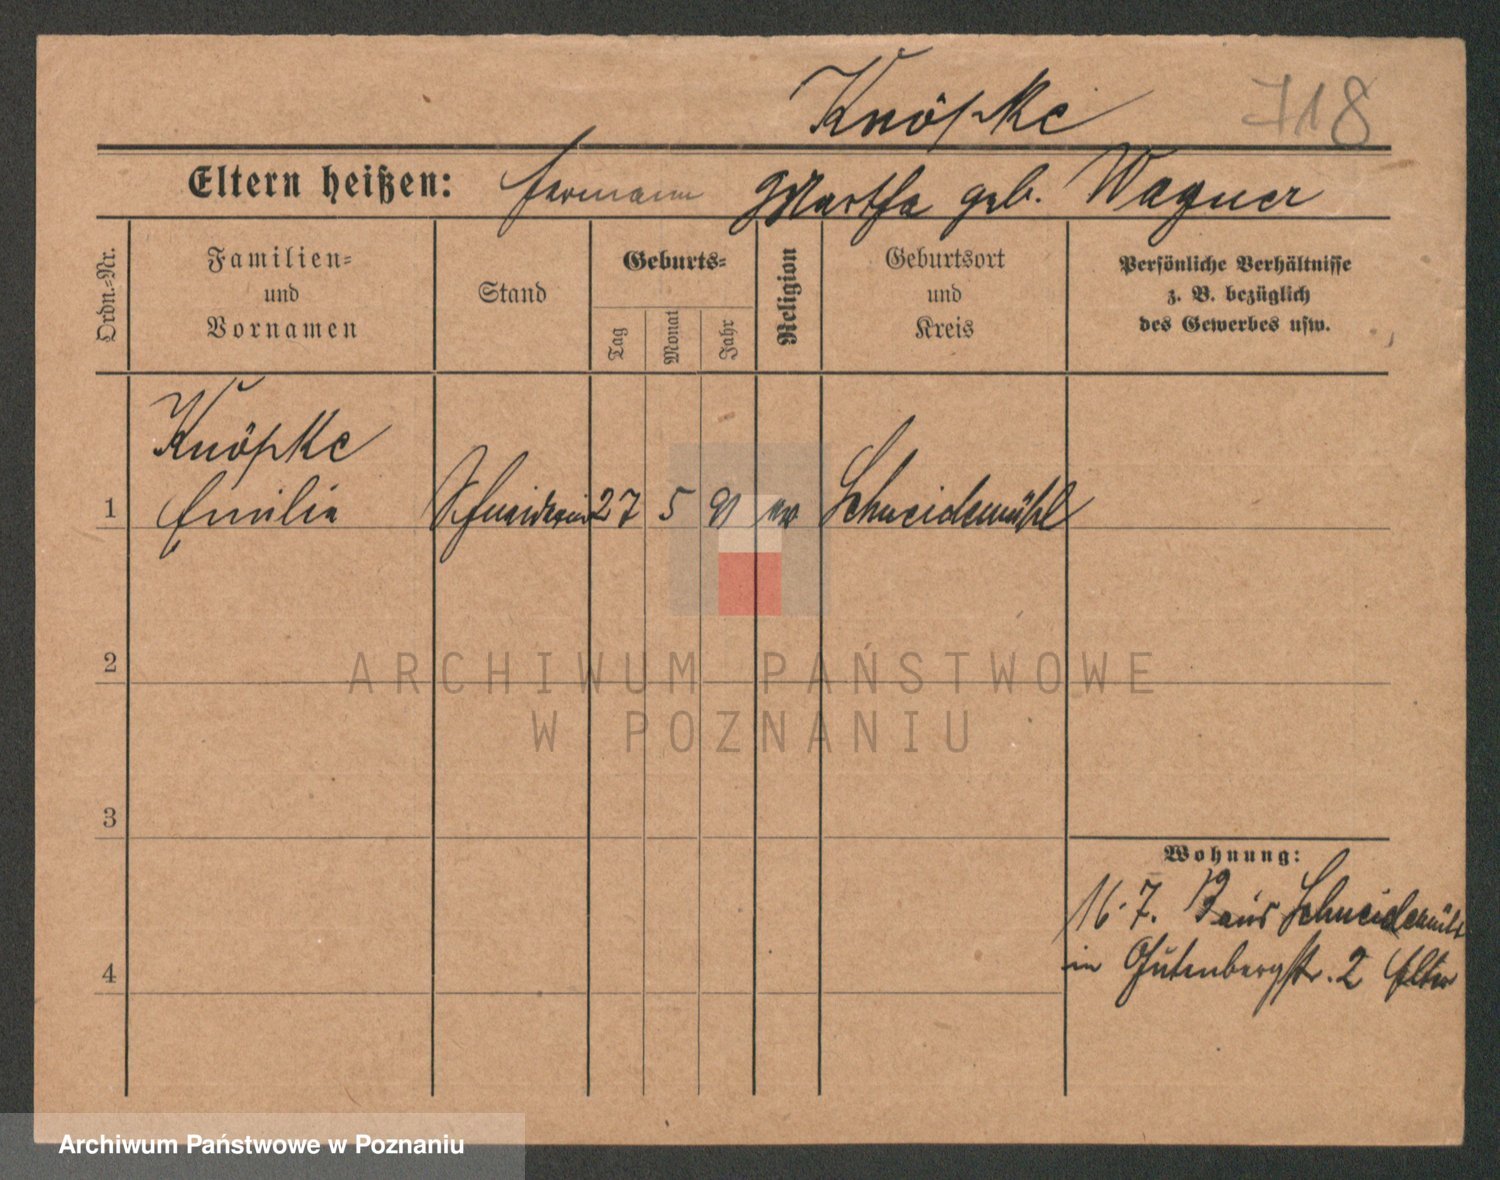 Knöpke 718
Eltern heißen: Hermann Martha geb. Wagner
Ordn.-Nr.
Familien-
und
Vornamen
Stand
Geburts-
Tag
Monat
Jahr
Religion
Geburtsort
und
Kreis
Persönliche Verhältnisse
z. B. bezüglich
des Gewerbes usw.
Knöpke
1 Emilie Schneiderin 27 5 91 Schneidemühl
2
3
4
Wohnung:
16. 7. aus Schneidemühl
in Gutenbergstr. 2 Eltern
ARCHIWUM PAŃSTWOWE
W POZNANIU
Archiwum Państwowe w Poznaniu